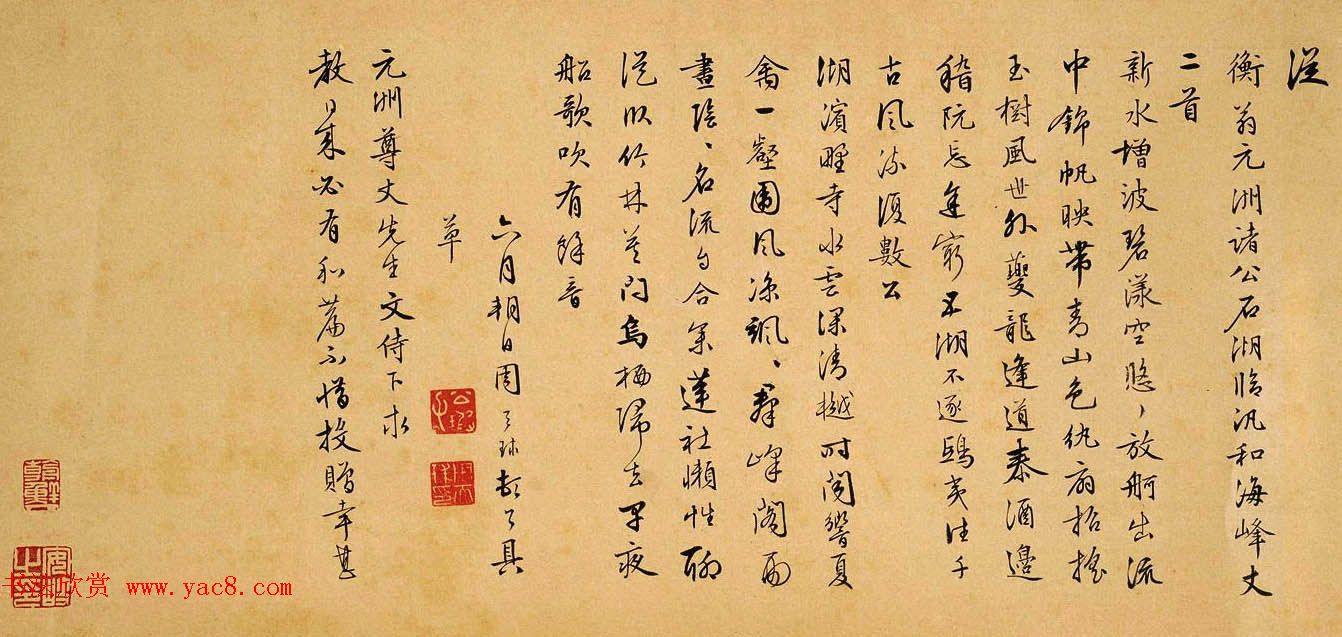 從
衡翁元洲诸公石湖臨汎和海峰丈
二首
新水增波碧漾空悠、放舸出流
中錦帆映帶青山色紈扇招搖
玉樹風世外夔龍逢道泰酒邊
稽阮忘年窮五湖不逐鴟夷往千
古風流復數公
湖濱野寺水雲深清樾时闻響夏
禽一壑圍風涼飒、群峰閣雨
晝陰、名流自合參蓮社懶性聊
從似竹林門烏栖歸去早夜
船歌吹有餘音
六月朔日周天球頓首具
草
元洲尊丈先生文侍下求
教日来必有和篇不惜投贈幸甚
欣赏 www.yac8.com